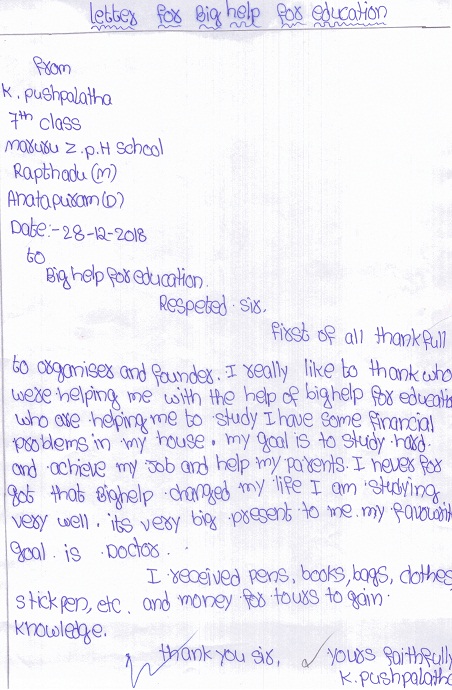 letter for Big help for education
from
K. pushpalatha
7th class
maruru z.p.H school
Rapthadu (M)
Anatapuram(D)
Date:- 28-12-2018
to
Big help for education.
Respeted sir.
first of all thankfull
to organiser and founder. I really like to thank who
were helping me with the help of bighelp for educatio
who are helping me to study I have some financial
problems in my house. my goal is to study hard.
and achieve my Job and help my parents. I never for
got that Bighelp changed my life I am studying
very well. its very big present to me. my favourit
goal is Doctor.
I received pens, books, bags, clothes
stickpen, etc. and money for tours to gain
knowledge.
thank you sir,
yours faithfully
K. pushpalatha